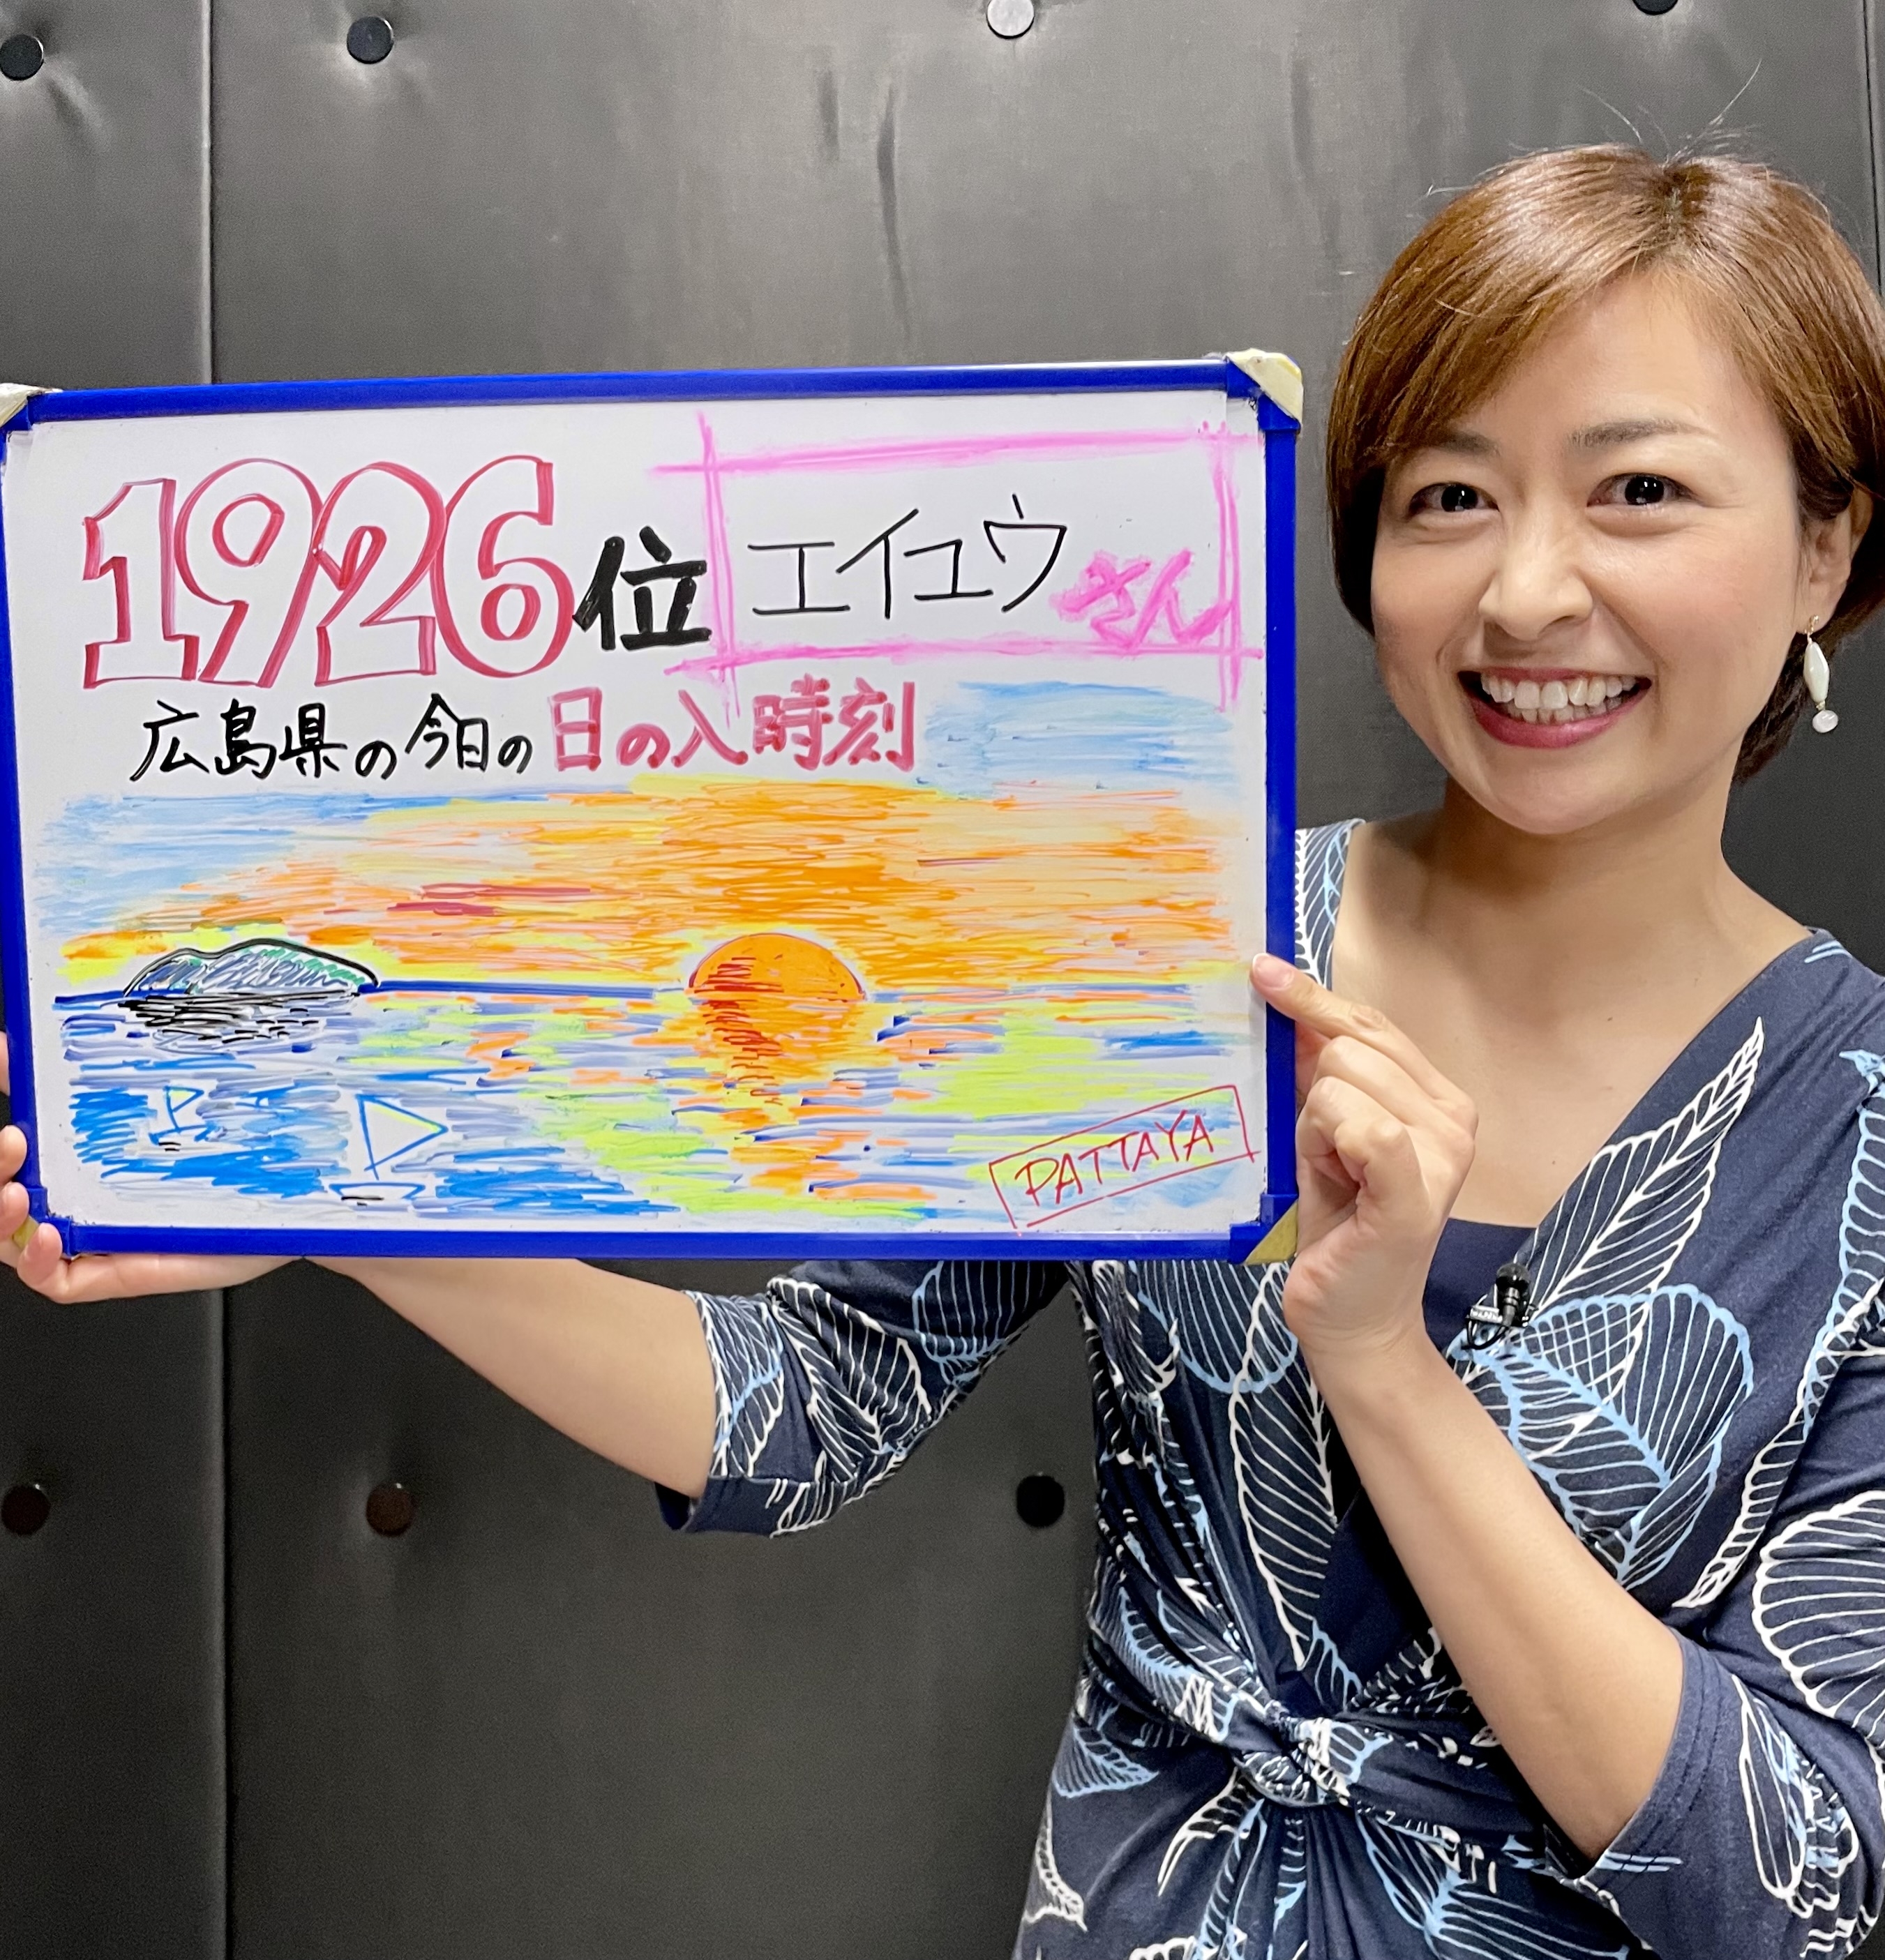 1926位 エイユウさん
広島県の今日の日の入時刻
PATTAYA